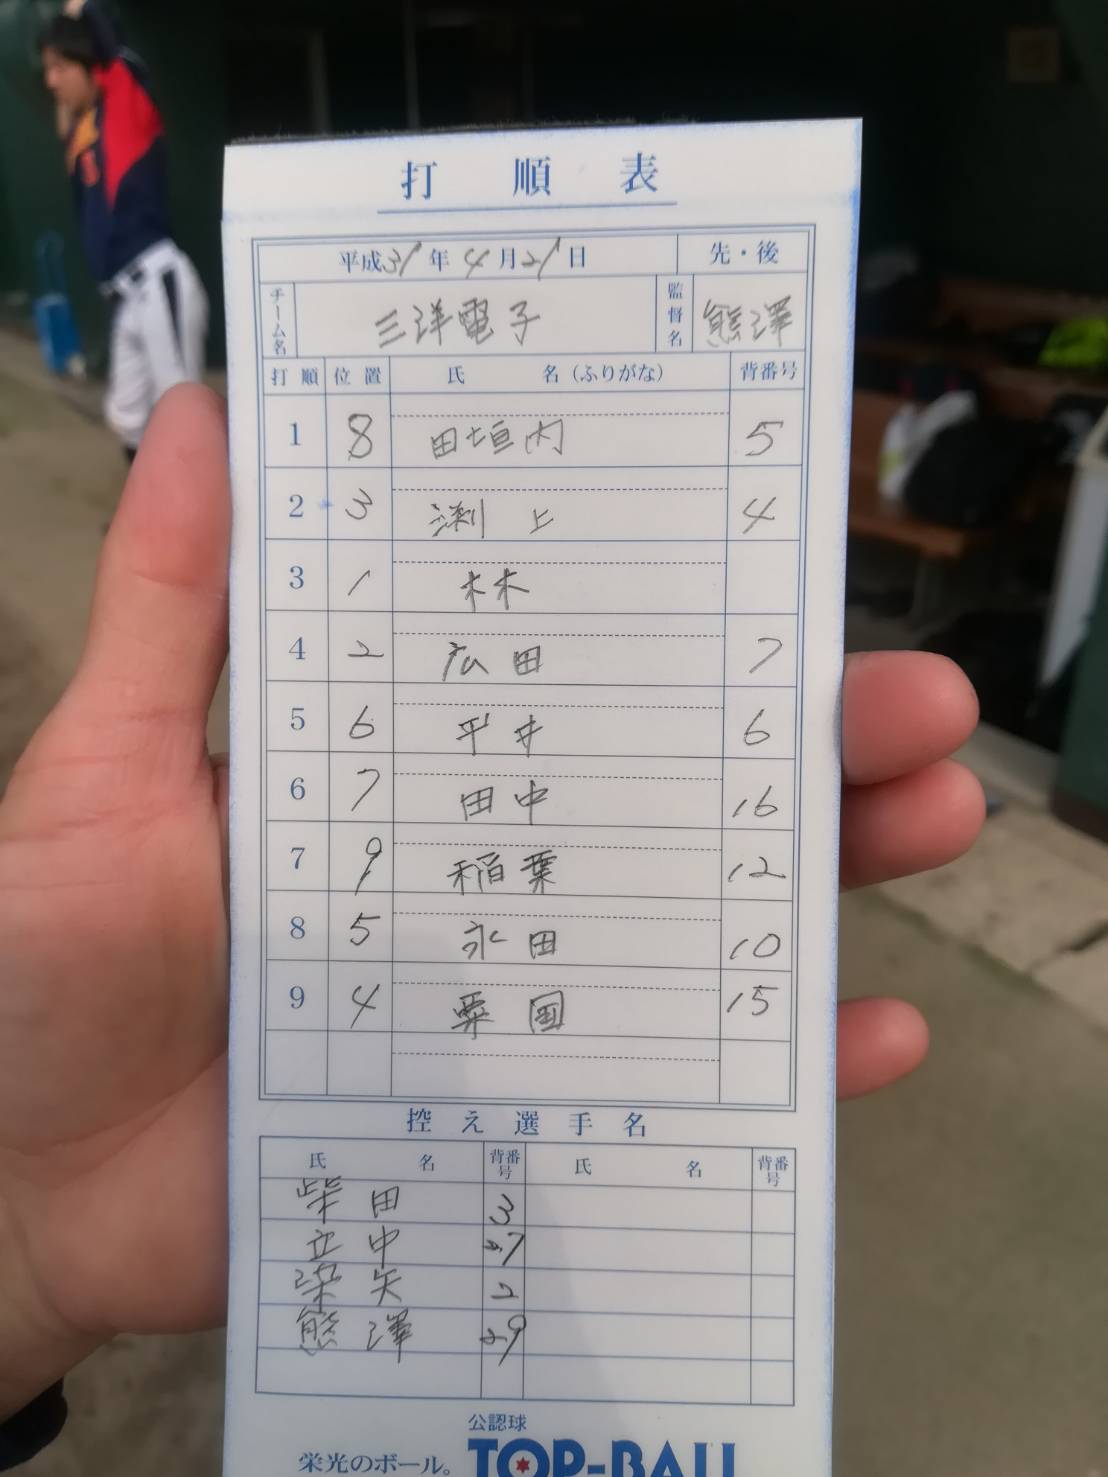 打順表
平成31年4月21日 先・後
チーム名 三洋電子 監督名 熊澤
打順 位置 氏名(ふりがな) 背番号
1 8 田垣内 5
2 3 渕上 4
3 1 林
4 2 広田 7
5 6 平井 6
6 7 田中 16
7 9 稲葉 12
8 5 永田 10
9 4 粟国 15
控え選手名
氏名 背番号 氏名 背番号
柴田 3
立中 27
染矢 2
熊澤 29
公認球
栄光のボール。 TOP-BALL